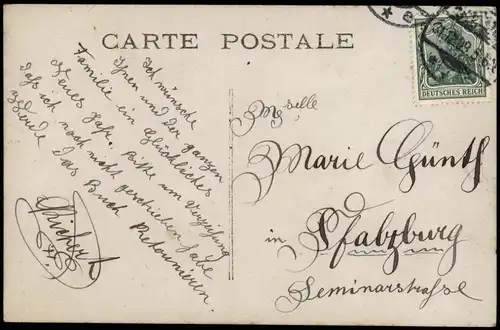 CARTE POSTALE
DEUTSCHES REICH
Ich wünsche
Ihnen und der ganzen
Familie ein Glückliches
Neues Jahr. Bitte um Verzeihung
daß ich noch nicht geschrieben habe
Werde das Buch Retournieren.
Mselle
Marie Günth
in Pfalzburg
Seminarstrasse